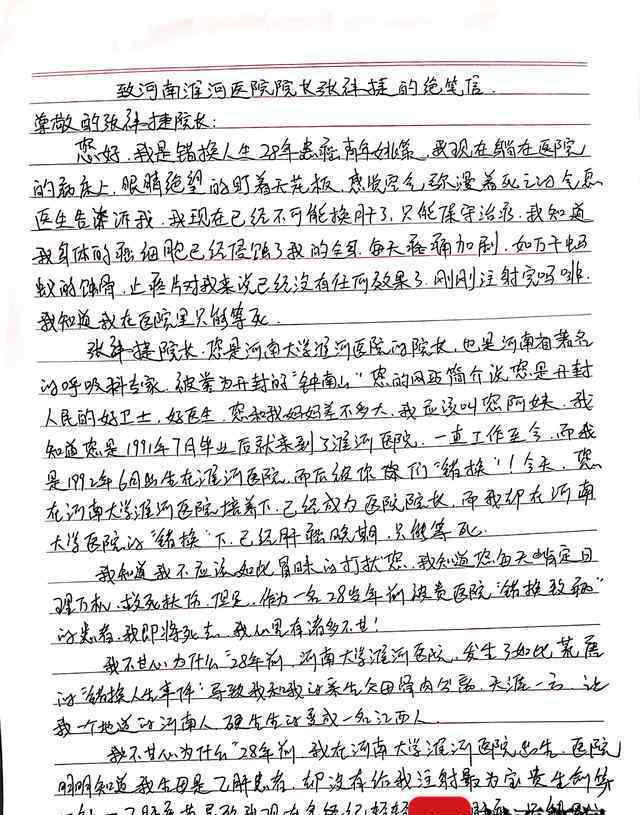 致河南淮河医院院长张祎捷的绝笔信
尊敬的张祎捷院长：
您好，我是错换人生28年患癌青年姚策，我现在躺在医院
的病床上，眼睛绝望的盯着天花板，感觉空气弥漫着死亡的气息
医生告诉我，我现在已经不可能换肝了，只能保守治疗，我知道
我身体的癌细胞已经侵蚀了我的全身，每天疼痛加剧，如万千蚂
蚁的蚀骨，止疼片对我来说已经没有任何效果了，刚刚注射完吗啡，
我知道我在医院里只能等死。
张祎捷院长，您是河南大学淮河医院的院长，也是河南省著名
的呼吸科专家，被誉为开封的“钟南山”您的网站简介说您是开封
人民的好卫士，好医生，您和我妈妈差不多大，我应该叫您阿姨，我
知道您是1991年7月毕业后就来到了淮河医院，一直工作至今，而我
是1992年6月出生在淮河医院，而后被你们“错换”！！今天，您
在河南大学淮河医院培养下，已经成为医院院长，而我却在河南
大学医院的“错换”下，已经肝癌晚期，只能等死。
我知道我不应该如此冒昧的打扰您，我知道您每天肯定日
理万机，救死扶伤，但是，作为一名28岁年前被贵医院“错换致癌”
的患者，我即将死去，我心里有诸多不甘！
我不甘心为什么“28年前，河南大学淮河医院，发生了如此荒唐
的“错换人生事件”导致我和我的亲生父母骨肉分离，天涯一方，让
我一个地道的河南人，硬生生的变成一名江西人。
我不甘心为什么“28年前，我在河南大学淮河医院出生，医院
明明知道我生母是乙肝患者，却没有给我注射最为宝贵生剑等